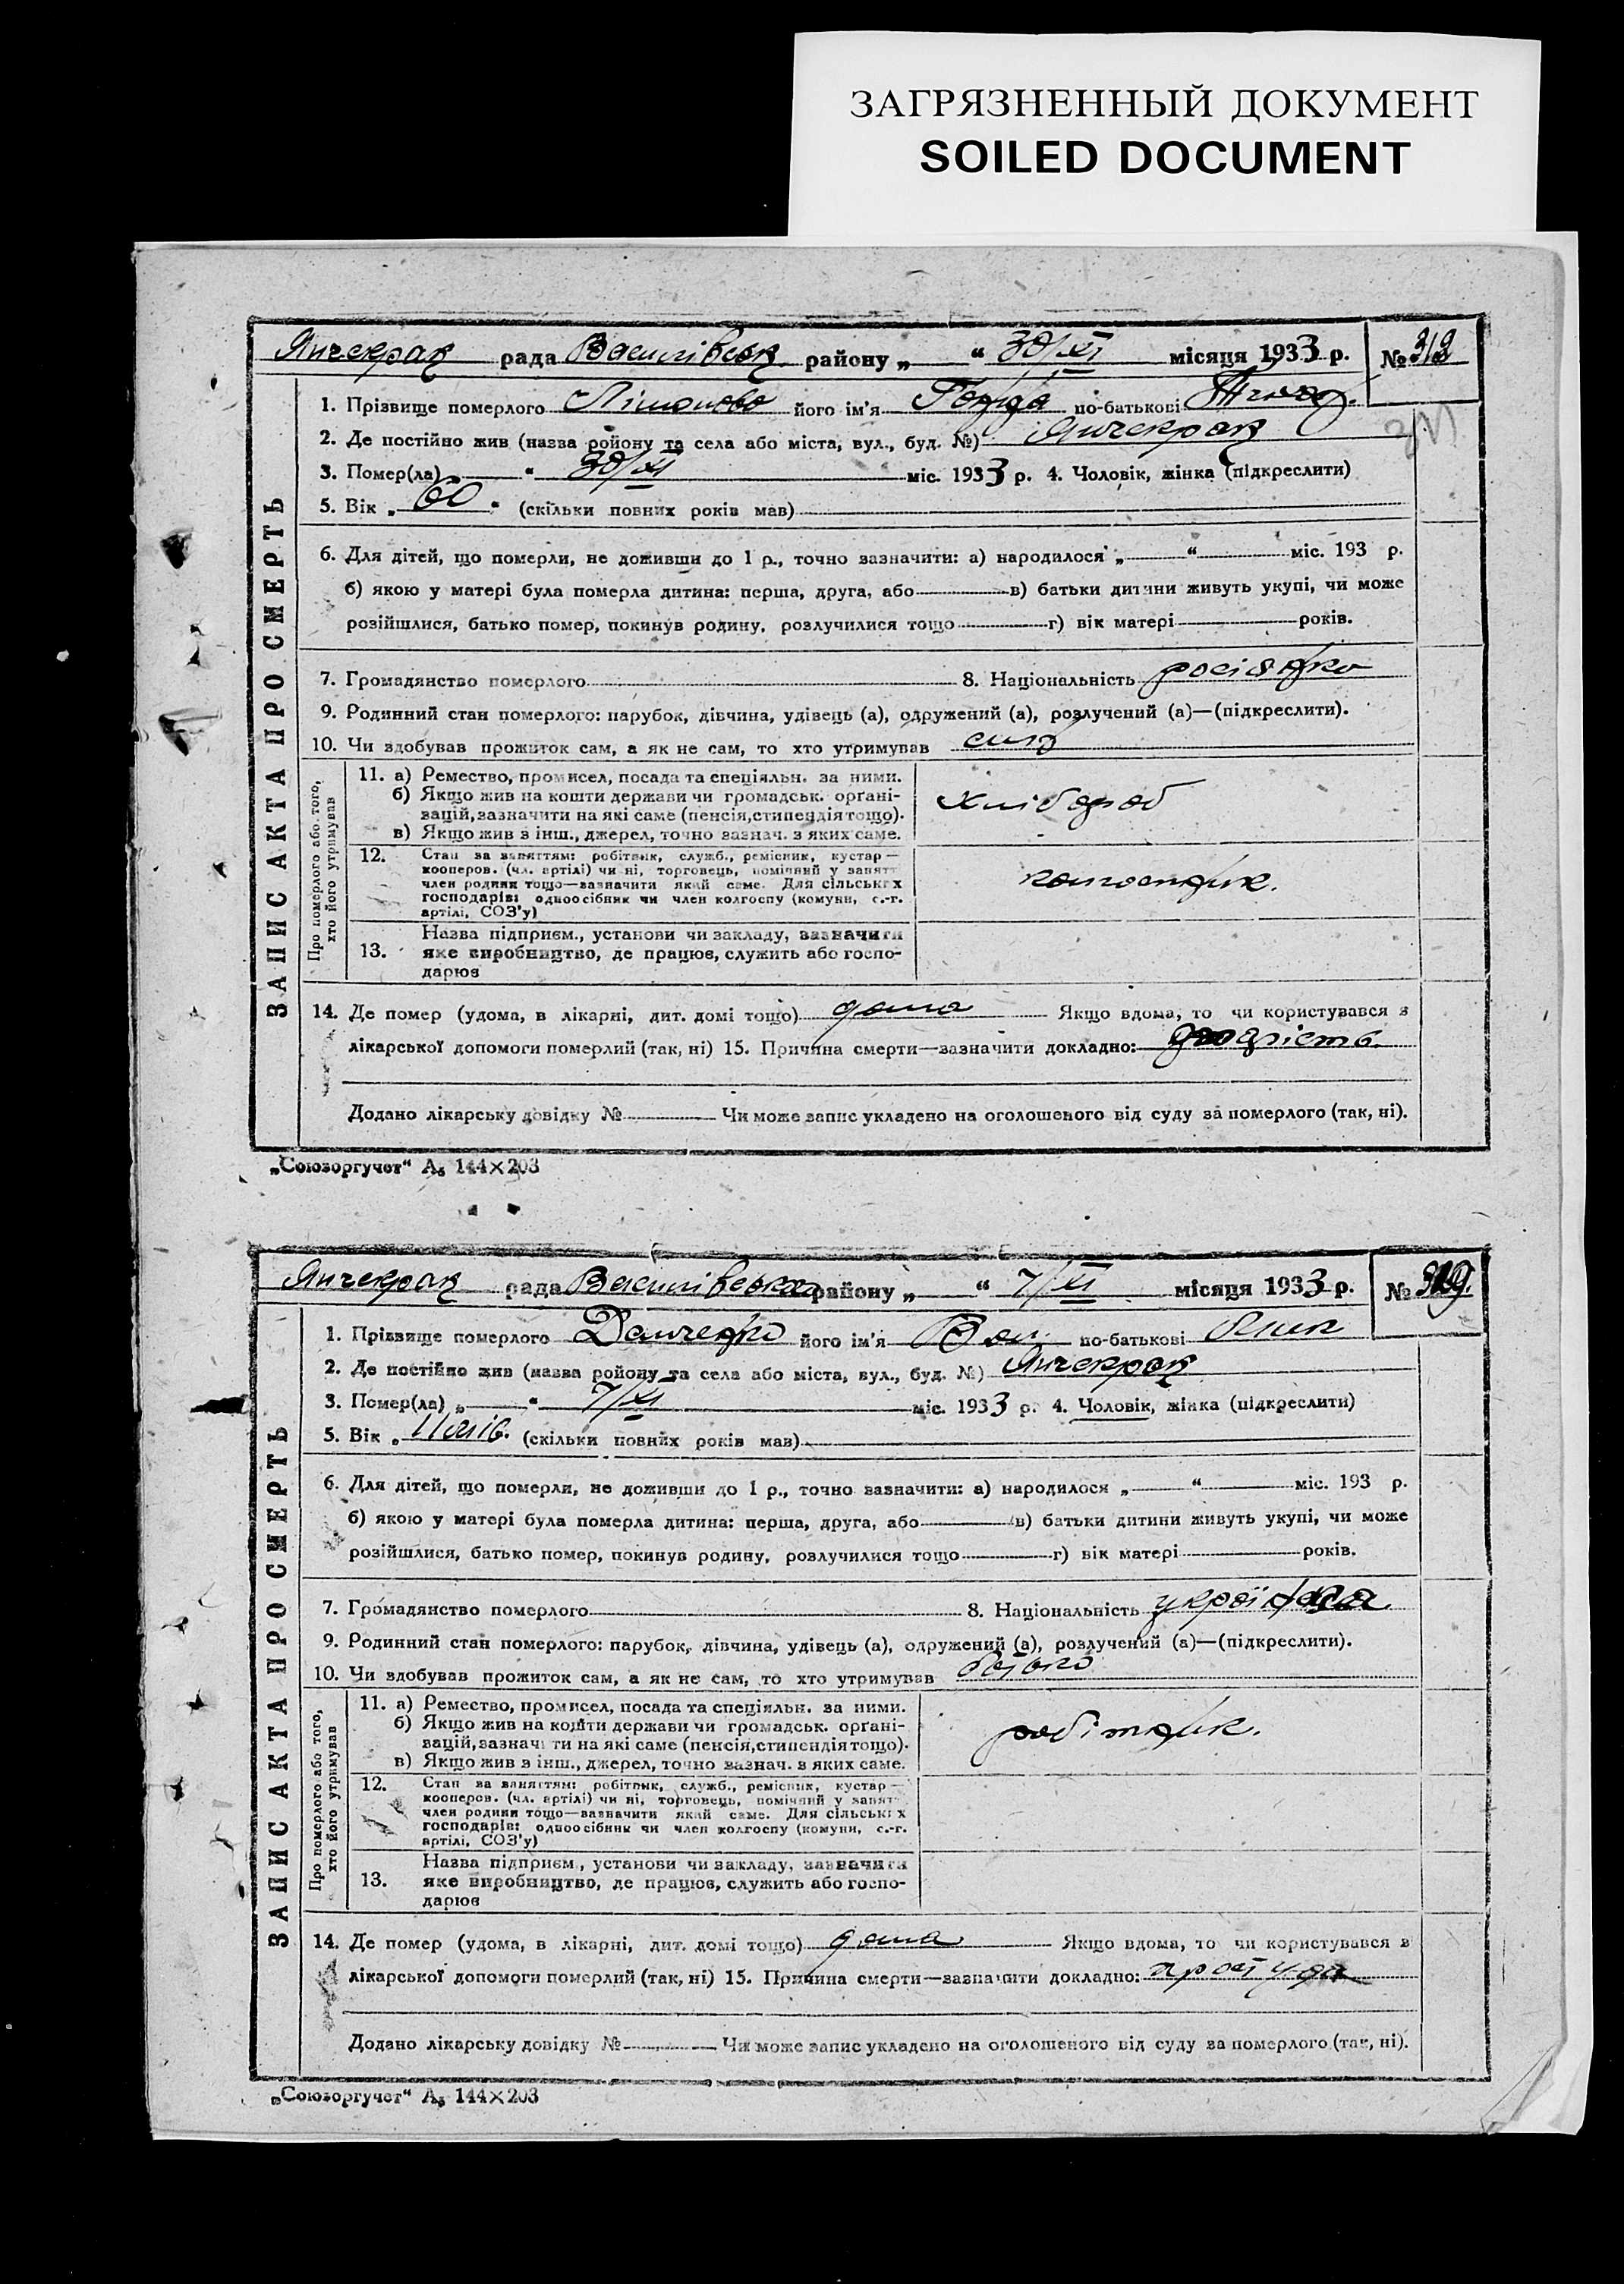 ЗАГРЯЗНЕННЫЙ ДОКУМЕНТ
SOILED DOCUMENT
Янчекрак рада Василівськ району „ “ 30/XI місяця 1933 р. №
1. Прізвище померлого його ім'я по-батькові
2. Де постійно жив (назва району та села або міста, вул., буд. №) Янчекрак
3. Помер(ла) „ “ 30/XI міс. 1933 р. 4. Чоловік, жінка (підкреслити)
5. Вік „ 60 “ (скільки повних років мав)
6. Для дітей, що померли, не доживши до 1 р., точно зазначити: а) народилося „ “ міс. 193 р.
б) якою у матері була померла дитина: перша, друга, або в) батьки дитини живуть укупі, чи може
розійшлися, батько помер, покинув родину, розлучилися тощо г) вік матері років.
7. Громадянство померлого 8. Національність росіянка
9. Родинний стан померлого: парубок, дівчина, удівець (а), одружений (а), розлучений (а)—(підкреслити).
10. Чи здобував прожиток сам, а як не сам, то хто утримував син
11. а) Ремество, промисел, посада та спеціяльн. за ними.
б) Якщо жив на кошти держави чи громадськ. орґані-
зацій, зазначити на які саме (пенсія, стипендія тощо).
в) Якщо жив з інш., джерел, точно зазнач. з яких саме.
хлібороб
12. Стан за заняттям: робітник, служб., ремісник, кустар—
кооперов. (чл. артілі) чи ні, торговець, помічний у занятт
член родини тощо—зазначити який саме. Для сільських
господарів: одноосібник чи член колгоспу (комуни, с.-г.
артілі, СОЗ'у)
колгоспник.
13. Назва підприєм., установи чи закладу, зазначити
яке виробництво, де працює, служить або госпо-
дарює
14. Де помер (удома, в лікарні, дит. домі тощо) дома Якщо вдома, то чи користувався з
лікарської допомоги померлий (так, ні) 15. Причина смерти—зазначити докладно:
Додано лікарську довідку № Чи може запис укладено на оголошеного від суду за померлого (так, ні).
ЗАПИС АКТА ПРО СМЕРТЬ
Про померлого або того,
хто його утримував
„Союзоргучет“ А₆ 144×203
Янчекрак рада Василівська району „ “ 7/XI місяця 1933 р. №
1. Прізвище померлого Демченко його ім'я по-батькові
2. Де постійно жив (назва району та села або міста, вул., буд. №) Янчекрак
3. Помер(ла) „ “ 7/XI міс. 1933 р. 4. Чоловік, жінка (підкреслити)
5. Вік „ (скільки повних років мав)
6. Для дітей, що померли, не доживши до 1 р., точно зазначити: а) народилося „ “ міс. 193 р.
б) якою у матері була померла дитина: перша, друга, або в) батьки дитини живуть укупі, чи може
розійшлися, батько помер, покинув родину, розлучилися тощо г) вік матері років.
7. Громадянство померлого 8. Національність
9. Родинний стан померлого: парубок, дівчина, удівець (а), одружений (а), розлучений (а)—(підкреслити).
10. Чи здобував прожиток сам, а як не сам, то хто утримував батько
11. а) Ремество, промисел, посада та спеціяльн. за ними.
б) Якщо жив на кошти держави чи громадськ. орґані-
зацій, зазначити на які саме (пенсія, стипендія тощо).
в) Якщо жив з інш., джерел, точно зазнач. з яких саме.
робітник.
12. Стан за заняттям: робітник, служб., ремісник, кустар—
кооперов. (чл. артілі) чи ні, торговець, помічний у занят
член родини тощо—зазначити який саме. Для сільських
господарів: одноосібник чи член колгоспу (комуни, с.-г.
артілі, СОЗ'у)
13. Назва підприєм., установи чи закладу, зазначити
яке виробництво, де працює, служить або госпо-
дарює
14. Де помер (удома, в лікарні, дит. домі тощо) дома Якщо вдома, то чи користувався з
лікарської допомоги померлий (так, ні) 15. Причина смерти—зазначити докладно: простуда
Додано лікарську довідку № Чи може запис укладено на оголошеного від суду за померлого (так, ні).
ЗАПИС АКТА ПРО СМЕРТЬ
Про померлого або того,
хто його утримував
„Союзоргучет“ А₆ 144×203